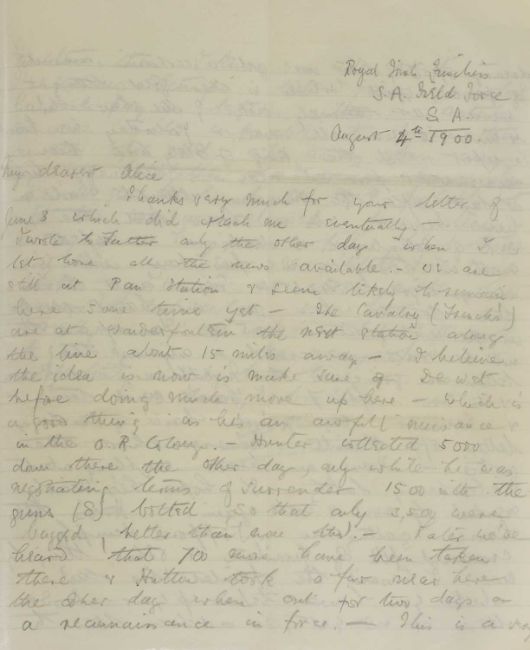 Royal Irish Fusiliers
S.A. Field Force
S.A.
August 4th 1900
My dearest Alice
Thanks very much for your letter of
June 3 which did reach me eventually. -
I wrote to Father only the other day when I
let have all the news available. - We are
still at Pan Station & seem likely to remain
here some time yet - The Cavalry (French's)
are at Wonderfontein the next station along
the line about 15 miles away - I believe
the idea is now is make sure of De Wet
before doing much more up here - which is
a good thing as he's an awful nuisance
in the O.R. Colony. - Hunter collected 5000
down there the other day only while he was
negotiating terms of surrender 1500 with the
guns (8) bolted so that only 3,500 were
bagged, better than none tho'. - Later we've
heard that 700 more have been taken
there & Hutton took a few near here
the other day when out for two days on
a reconnaissance in force. - This is a